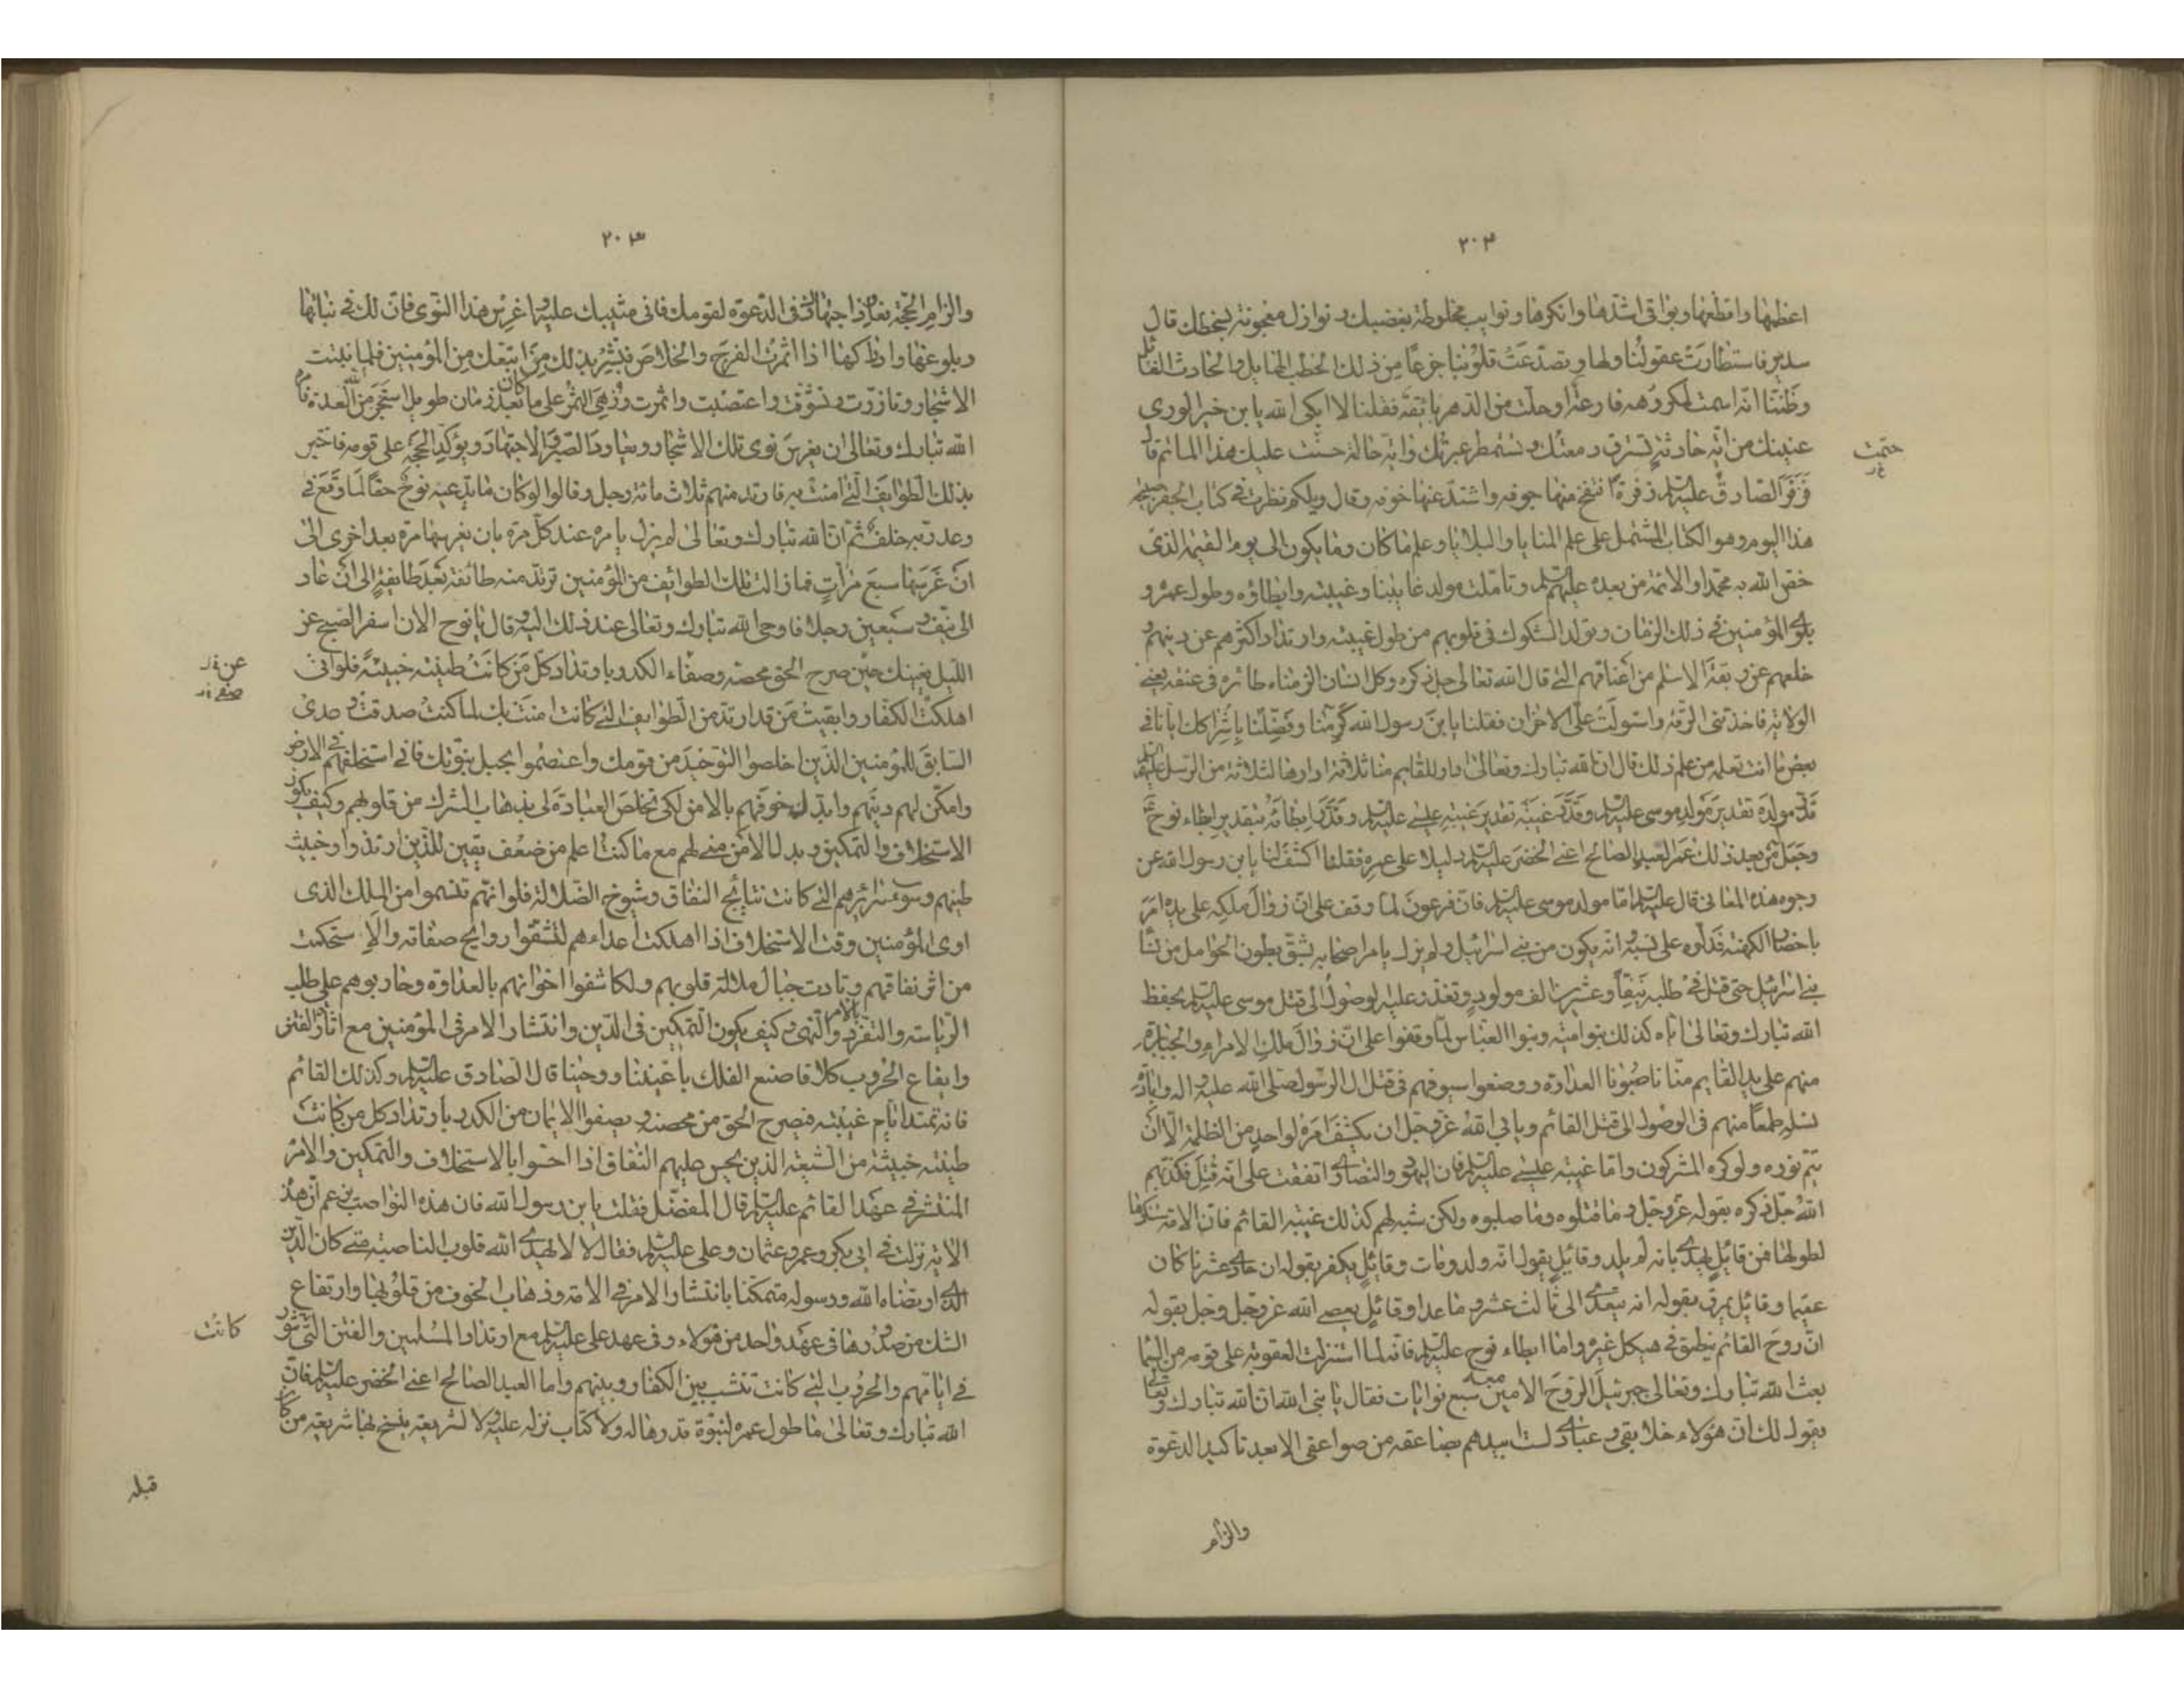 ٢٠٣
اعظمها وافظعها وبواقي اشدّها وانكرها ونوايب مخلوطة بغضبك ونوازل معجونة بسخطك قال
سدير فاستطارت عقولنا ولها وتصدّعت قلوبنا جزعًا من ذلك الخطب الهايل والحادث الغائل
وظننّا انّه سمت لمكروهه قارعة او حلّت من الدهر بائقة فقلنا لا ابكى الله يا بن خير الورى
عينيك من ايّه حادثة تسترق دمعتك وتستمطر عبرتك وايّة حالة حتمت عليك هذا الماتم قال
حتمت
فزفر الصادق عليه السلم زفرة انتفخ منها جوفه واشتدّ عنها خوفه وقال ويلكم نظرت في كتاب الجفر صبيحة
هذا اليوم وهو الكتاب المشتمل على علم المنايا والبلايا وعلم ما كان وما يكون الى يوم القيمه الذى
خصّ الله به محمّدا والائمة من بعده عليهم السلم وتأمّلت مولد غايبنا وغيبته وابطاؤه وطول عمره و
بلوى المؤمنين في ذلك الزمان وتولد الشكوك في قلوبهم من طول غيبته وارتداد اكثرهم عن دينهم و
خلعهم عن ربقة الاسلم من اعناقهم التي قال الله تعالى جل ذكره وكل انسان الزمناه طائره في عنقه يعني
الولاية فاخذتنى الرّقة واستولت علىّ الاحزان فقلنا يا بن رسول الله كرّمنا وفضّلنا باشراكك ايانا في
بعض ما انت تعلمه من علم ذلك قال ان الله تبارك وتعالى ادار للقايم منا ثلاثة ادارها لثلاثة من الرسل عليهم السلم
قدّر مولده تقدير مولد موسى عليه السلم وقدّر غيبته تقدير غيبة عيسى عليه السلم وقدّر ابطائه بتقدير ابطاء نوح ع
وجعل من بعد ذلك عمر العبد الصالح اعنى الخضر عليه السلم دليلا على عمره فقلنا اكشف لنا يا بن رسول الله عن
وجوه هذه المعانى قال عليه السلم امّا مولد موسى عليه السلم فان فرعون لما وقف على انّ زوال ملكه على يده امر
باحضار الكهنة فدلّوه على نسبه وانّه يكون من بني اسرائيل ولم يزل يامر اصحابه بشق بطون الحوامل من نسآء
بني اسرائيل حتى قتل في طلبه نيّفًا وعشرين الف مولود وتعذر عليه الوصول الى قتل موسى عليه السلم بحفظ
الله تبارك وتعالى ايّاه كذلك بنو اميّة وبنوا العبّاس لمّا وقفوا على انّ زوال ملك الامراء والجبابرة
منهم على يد القايم منّا ناصبونا العداوة ووضعوا سيوفهم في قتل ال الرّسول صلى الله عليه واله وابادة
نسله طمعًا منهم في الوصول الى قتل القائم ويابى الله عزّ وجلّ ان يكشف امره لواحد من الظلمة الّا ان
يتمّ نوره ولو كره المشركون وامّا غيبة عيسى عليه السلم فان اليهود والنصارى اتفقت على انّه قُتل فكذبهم
الله جلّ ذكره بقوله عزّ وجل وما قتلوه وما صلبوه ولكن شبه لهم كذلك غيبة القائم فان الامّة ستنكرها
لطولها فمن قائل يهذى بانّه لم يلد وقائل يقول انّه ولد ومات وقائل يكفر بقوله ان حادى عشرنا كان
عقيما وقائل يمرق بقوله انه يتعدّى الى ثالث عشر وما عدا وقائل يعصي الله عزّ وجل بقوله
انّ روح القائم ينطق في هيكل غيره وامّا ابطاء نوح عليه السلم فانّه لما استنزلت العقوبة على قومه من السّماء
بعث الله تبارك وتعالى جبرئيل الرّوح الامين معه سبع نوايات فقال يا نبىّ الله ان الله تبارك وتعالى
يقول لك ان هؤلاء خلايقى وعبادى لست ابيدهم بصاعقة من صواعقى الا بعد تاكيد الدعوة
والزام
٢٠٣
والزام الحجّة فعاود اجتهادك في الدّعوة لقومك فانى مثيبك عليه واغرس هذا النوى فان لك في نباتها
وبلوغها وادراكها اذا اثمرت الفرج والخلاص فبشّر بذلك من اتبعك من المؤمنين فلما نبتت
الاشجار وتازرت وتسوّقت واعتصبت واثمرت وزهى الثمر على ما كان بعد زمان طويل استنجز من الله العدة فامره
الله تبارك وتعالى ان يغرس نوى تلك الاشجار ويعاود الصّبر والاجتهاد ويؤكد الحجة على قومه فاخبر
بذلك الطوايف الّتى امنت به فارتد منهم ثلاث مائة رجل وقالوا لو كان ما يدعيه نوح حقّا لما وقع في
وعد ربه خلف ثم ان الله تبارك وتعالى لم يزل يامره عند كلّ مرة بان يغرسها مرة بعد اخرى الى
ان غرسها سبع مرّات فما زالت تلك الطوائف من المؤمنين ترتد منه طائفة بعد طايفة الى ان عاد
الى نيف وسبعين رجلا فاوحى الله تبارك وتعالى عند ذلك اليه وقال يا نوح الان اسفر الصبح عن
الليل بعينك حين صرح الحق محضه وصفاء الكدر بارتداد كلّ من كانت طينته خبيثة فلو انى
عن
اهلكت الكفّار وابقيت من قد ارتدّ من الطوايف التي كانت امنت بك لما كنت صدقت وعدى
السّابق للمؤمنين الّذين اخلصوا التوحيد من قومك واعتصموا بحبل نبوّتك فانى استخلفهم في الارض
وامكّن لهم دينهم وابدل خوفهم بالامن لكي تخلص العبادة لى بذهاب الشرك من قلوبهم وكيف يكون
الاستخلاف والتمكين وبدل الامن مني لهم مع ما كنت اعلم من ضعف يقين الّذين ارتدّوا وخبث
طينهم وسوء سرائرهم التي كانت نتائج النفاق وشيوخ الضّلالة فلو انّهم تنسموا من الملك الذى
اوتى المؤمنين وقت الاستخلاف اذا اهلكت اعداءهم لنشقوا روايح صفاته ولاستحكمت
من اثر نفاقهم وتابدت حبال ضلالة قلوبهم ولكاشفوا اخوانهم بالعداوة وحاربوهم على طلب
الرّياسة والتفرّد بالامر والنهى وكيف يكون التمكين في الدّين وانتشار الامر في المؤمنين مع اثارة الفتن
وايقاع الحروب كلا فاصنع الفلك باعيننا ووحينا قال الصّادق عليه السلم وكذلك القائم
فانه تمتد ايّام غيبته فيصرح الحق من محضه ويصفوا الايمان من الكدر بارتداد كل من كانت
طينته خبيثة من الشّيعة الذين يخشى عليهم النّفاق اذا احسّوا بالاستخلاف والتمكين والامر
المنتشر في عهد القائم عليه السلم قال المفضّل فقلت يا بن رسول الله فان هذه النواصب تزعم ان هذه
الاية نزلت في ابى بكر وعمر وعثمان وعلى عليه السلم فقال لا لا يهدى الله قلوب الناصبة متى كان الدين
الّذى ارتضاه الله ورسوله متمكّنا بانتشار الامر في الامّة وذهاب الخوف من قلوبها وارتفاع
الشك من صدورها في عهد واحد من هؤلاء وفى عهد على عليه السلم مع ارتداد المسلمين والفتن الّتى تثور
كانت
في ايّامهم والحروب التي كانت تنشب بين الكفّار وبينهم واما العبد الصّالح اعنى الخضر عليه السلم فان
الله تبارك وتعالى ما طول عمره لنبوّة قدرها له ولا كتاب نزله عليه ولا لشريعة ينسخ بها شريعة من كان
قبله